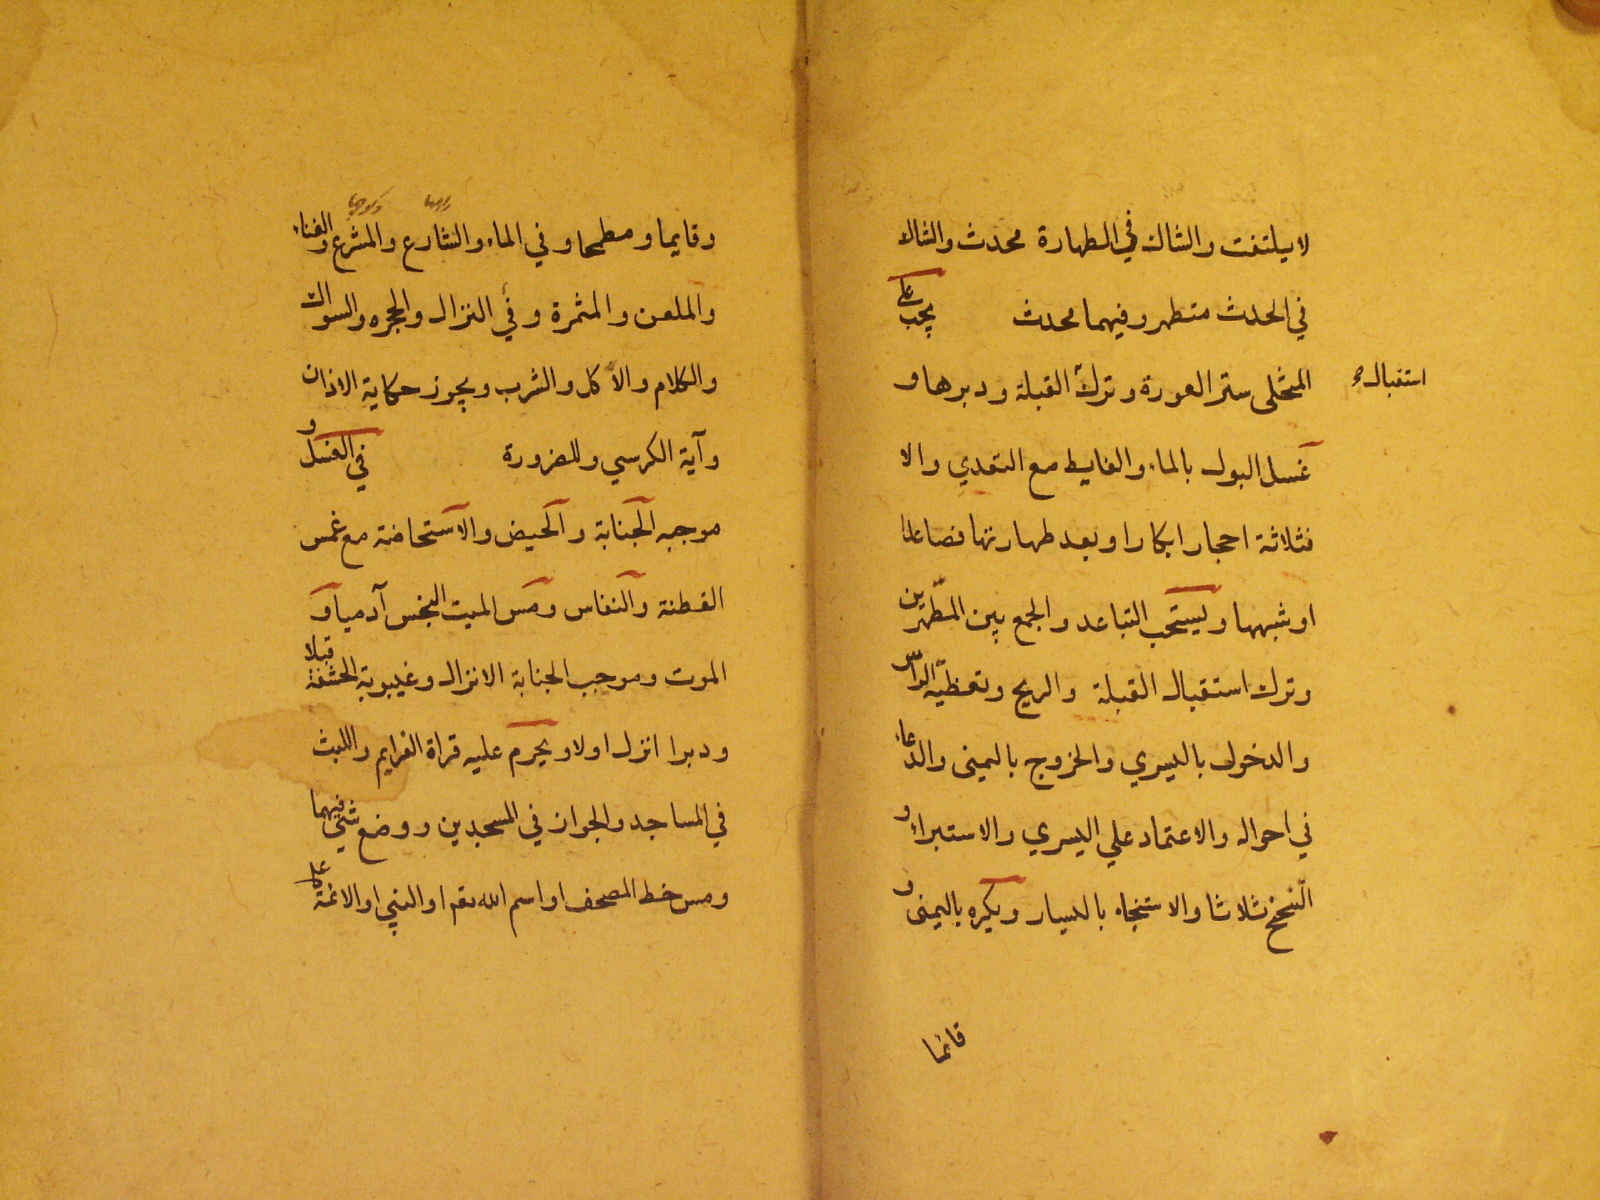 لا يلتفت والشاك في الطهارة محدث والشاك
في الحدث متطهر وفيهما محدث يجب على
المتخلى ستر العورة وترك القبلة ودبرها و
استقبال
غسل البول بالماء والغايط مع التعدي والا
فثلاثة احجار ابكارا وبعد طهارتها فصاعدا
او شبهها ويستحب التباعد والجمع بين المطهرين
وترك استقبال القبلة والريح وتغطية الراس
والدخول باليسري والخروج باليمنى والدعاء
في احواله والاعتماد علي اليسري والاستبراء و
التنحنح ثلاثا والاستنجاء باليسار ويكره باليمنى و
قائما
وقايما ومطمحا وفي الماء والشارع والمشرع والفناء
والملعن والمثمرة وفي النزال والجحره والسواك
والكلام والأكل والشرب ويجوز حكاية الاذان
وآية الكرسي وللضرورة في الغسل و
موجبه الجنابة والحيض والاستحاضة مع غمس
القطنة والنفاس ومس الميت النجس آدميا و
الموت وموجب الجنابة الانزال وغيبوبة الحشفة قبلا
ودبرا انزل اولا ويحرم عليه قراة العزايم واللبث
في المساجد والجواز في المسجدين ووضع شي فيهما
ومس خط المصحف او اسم الله تعم او النبي او الائمة